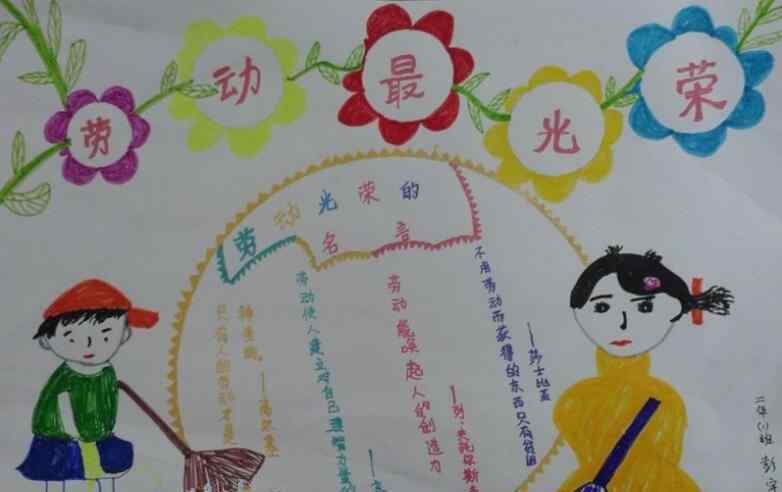 劳动最光荣
劳动光荣的
名言
不用劳动而获得的东西只有贫困
——莎士比亚
劳动能唤起人的创造力
——列·夫托尔斯
劳动使人建立对自己理智力量的
只有人的劳动才是
神圣的。——高尔基
二年(1)班 彭宇